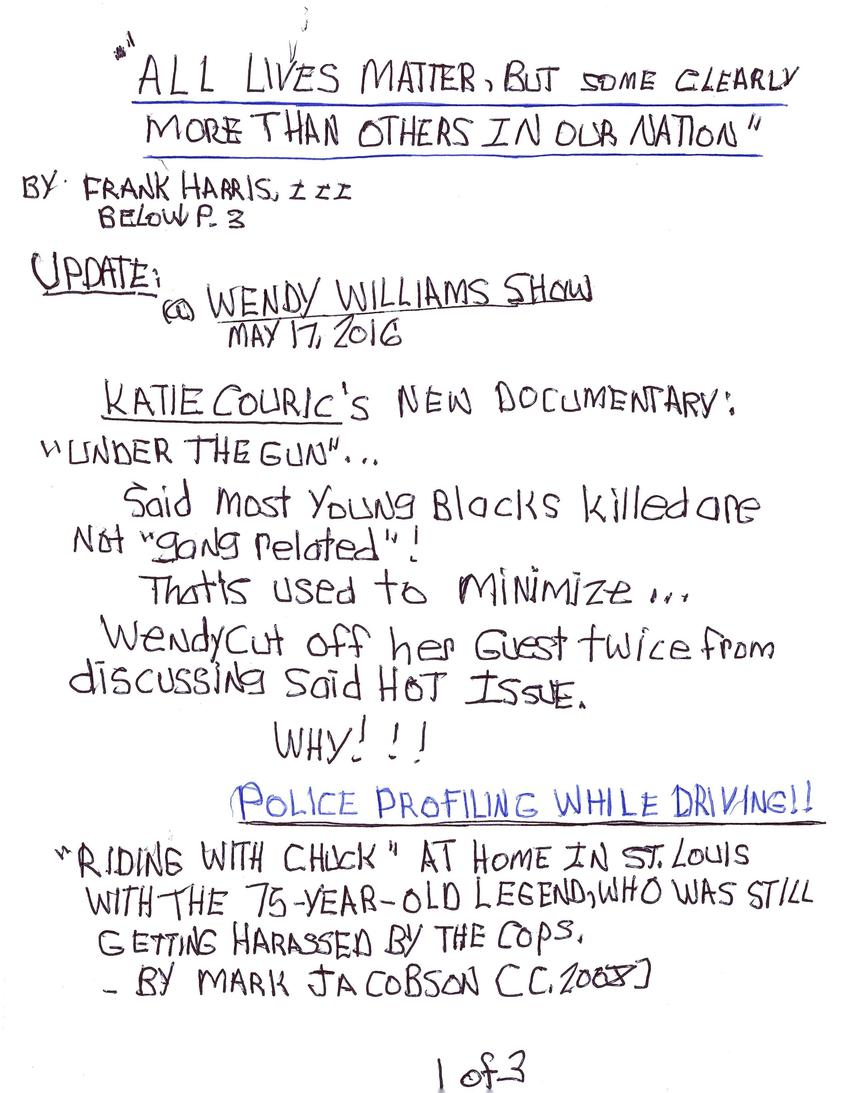 "ALL LIVES MATTER, BUT SOME CLEARLY
MORE THAN OTHERS IN OUR NATION"
BY FRANK HARRIS, III
BELOW P. 3
UPDATE:
@ WENDY WILLIAMS SHOW
MAY 17, 2016
KATIE COURIC's NEW DOCUMENTARY:
"UNDER THE GUN"...
Said most Young Blacks killed are
Not "gang related"!
That's used to MiNiMize ...
Wendy Cut off her Guest twice from
discussiNg Said HOT ISSUE.
WHY!!!
POLICE PROFILING WHILE DRIVING!!
"RIDING WITH CHUCK" AT HOME IN ST. LOUIS
WITH THE 75-YEAR-OLD LEGEND, WHO WAS STILL
GETTING HARASSED BY THE COPS.
- BY MARK JACOBSON CC. 2008]
1 of 3